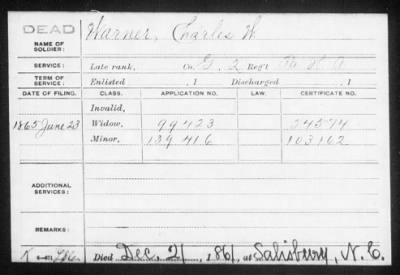 DEAD
NAME OF SOLDIER: Warner, Charles W.
SERVICE: Late rank, Co. G, 2 Reg't Pa. H. A.
TERM OF SERVICE: Enlisted , 1 Discharged , 1
DATE OF FILING. CLASS. APPLICATION NO. LAW. CERTIFICATE NO.
Invalid,
1865 June 23 Widow, 99423 74574
Minor, 139 416 103162
ADDITIONAL SERVICES:
REMARKS:
Died Dec. 21, 1864, at Salisbury, N. C.